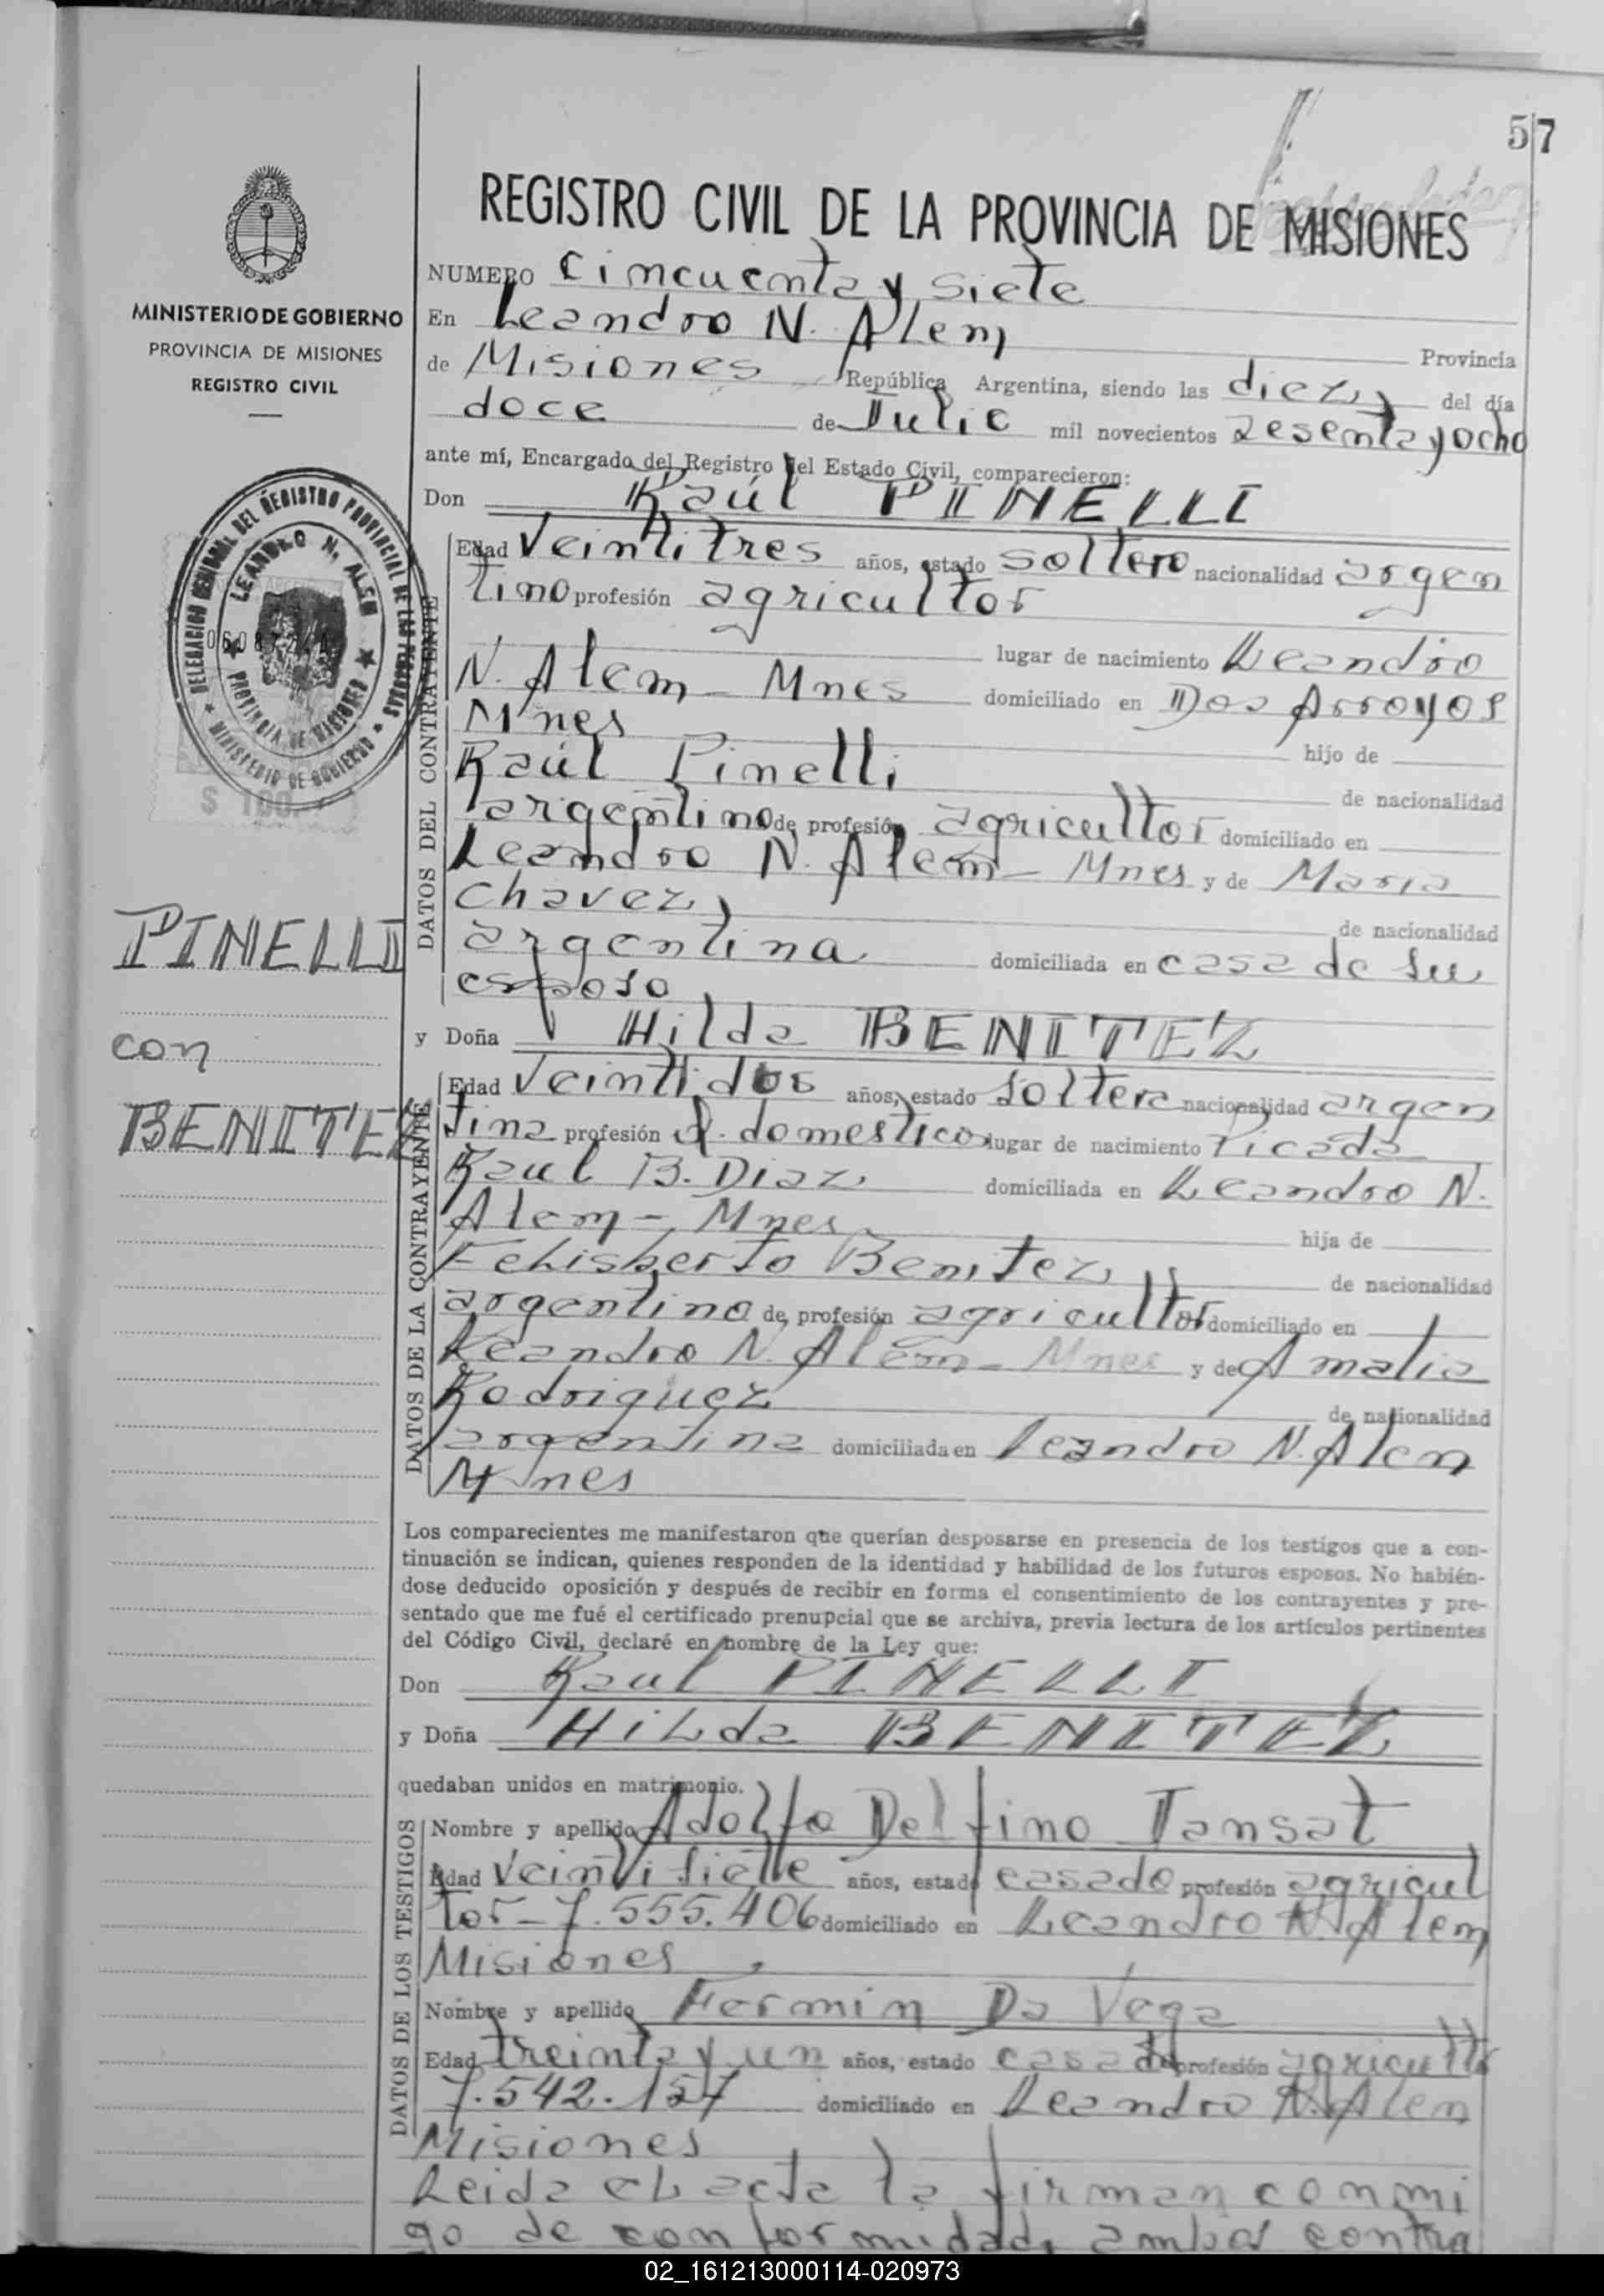 57
REGISTRO CIVIL DE LA PROVINCIA DE MISIONES
MINISTERIO DE GOBIERNO
PROVINCIA DE MISIONES
REGISTRO CIVIL
DELEGACION REGIONAL DEL REGISTRO PROVINCIAL DE LAS PERSONAS
LEANDRO N. ALEM
PROVINCIA DE MISIONES
MINISTERIO DE GOBIERNO
$ 100
PINELLI
con
BENITEZ
NUMERO Cincuenta y siete
En Leandro N. Alem Provincia
de Misiones República Argentina, siendo las diez del día
doce de Julio mil novecientos sesenta y ocho
ante mí, Encargado del Registro del Estado Civil, comparecieron:
Don Raúl PINELLI
DATOS DEL CONTRAYENTE
Edad Veintitres años, estado soltero nacionalidad argen
tino profesión agricultor
lugar de nacimiento Leandro
N. Alem - Mnes domiciliado en Dos Arroyos
Mnes hijo de
Raúl Pinelli de nacionalidad
argentino de profesión agricultor domiciliado en
Leandro N. Alem - Mnes y de Maria
Chavez de nacionalidad
argentina domiciliada en casa de su
esposo
y Doña Hilda BENITEZ
DATOS DE LA CONTRAYENTE
Edad Veintidos años, estado soltera nacionalidad argen
tina profesión Q. domestico lugar de nacimiento Picada
Raul B. Diaz domiciliada en Leandro N.
Alem - Mnes hija de
Felisberto Benitez de nacionalidad
argentino de profesión agricultor domiciliado en
Leandro N. Alem - Mnes y de Amalia
Rodriguez de nacionalidad
argentina domiciliada en Leandro N. Alem
Mnes
Los comparecientes me manifestaron que querían desposarse en presencia de los testigos que a con-
tinuación se indican, quienes responden de la identidad y habilidad de los futuros esposos. No habién-
dose deducido oposición y después de recibir en forma el consentimiento de los contrayentes y pre-
sentado que me fué el certificado prenupcial que se archiva, previa lectura de los artículos pertinentes
del Código Civil, declaré en nombre de la Ley que:
Don Raul PINELLI
y Doña Hilda BENITEZ
quedaban unidos en matrimonio.
DATOS DE LOS TESTIGOS
Nombre y apellido Adolfo Delfino Tansat
Edad Veintisiete años, estado casado profesión agricul
tor - 7.555.406 domiciliado en Leandro N. Alem
Misiones
Nombre y apellido Fermin Da Vega
Edad treinta y un años, estado casado profesión agricultor
7.542.157 domiciliado en Leandro N. Alem
Misiones
Leida el acta la firman conmi
go de conformidad, ambos contra
02_161213000114-020973